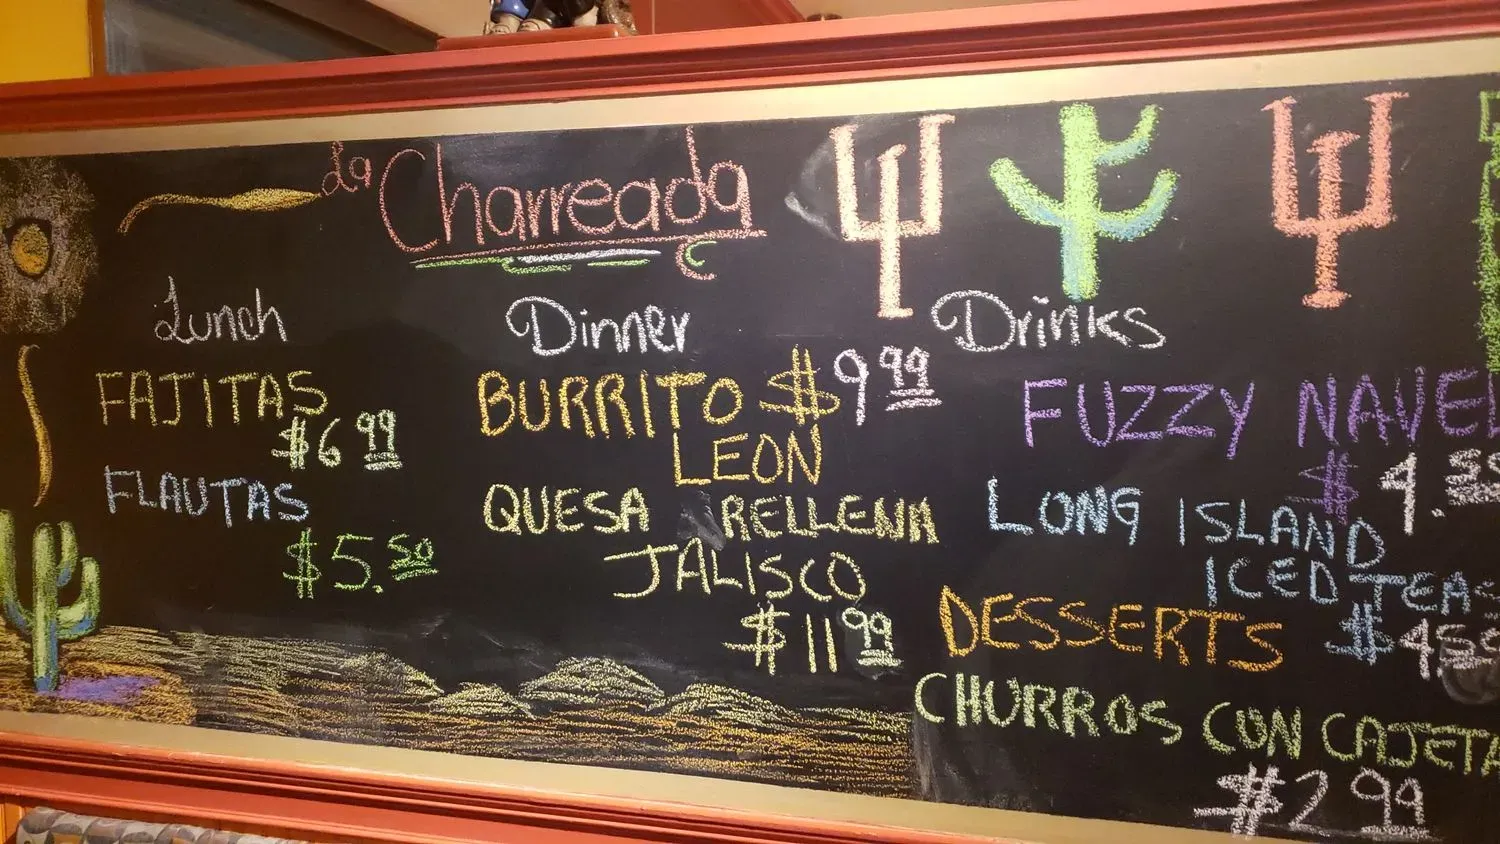 La Charreada
Lunch
FAJITAS
$6.99
FLAUTAS
$5.50
Dinner
BURRITO $9.99
LEON
QUESA RELLENA
JALISCO
$11.99
Drinks
FUZZY NAVEL
$4.55
LONG ISLAND
ICED TEAS
$4.55
DESSERTS
CHURROS CON CAJETA
$2.99